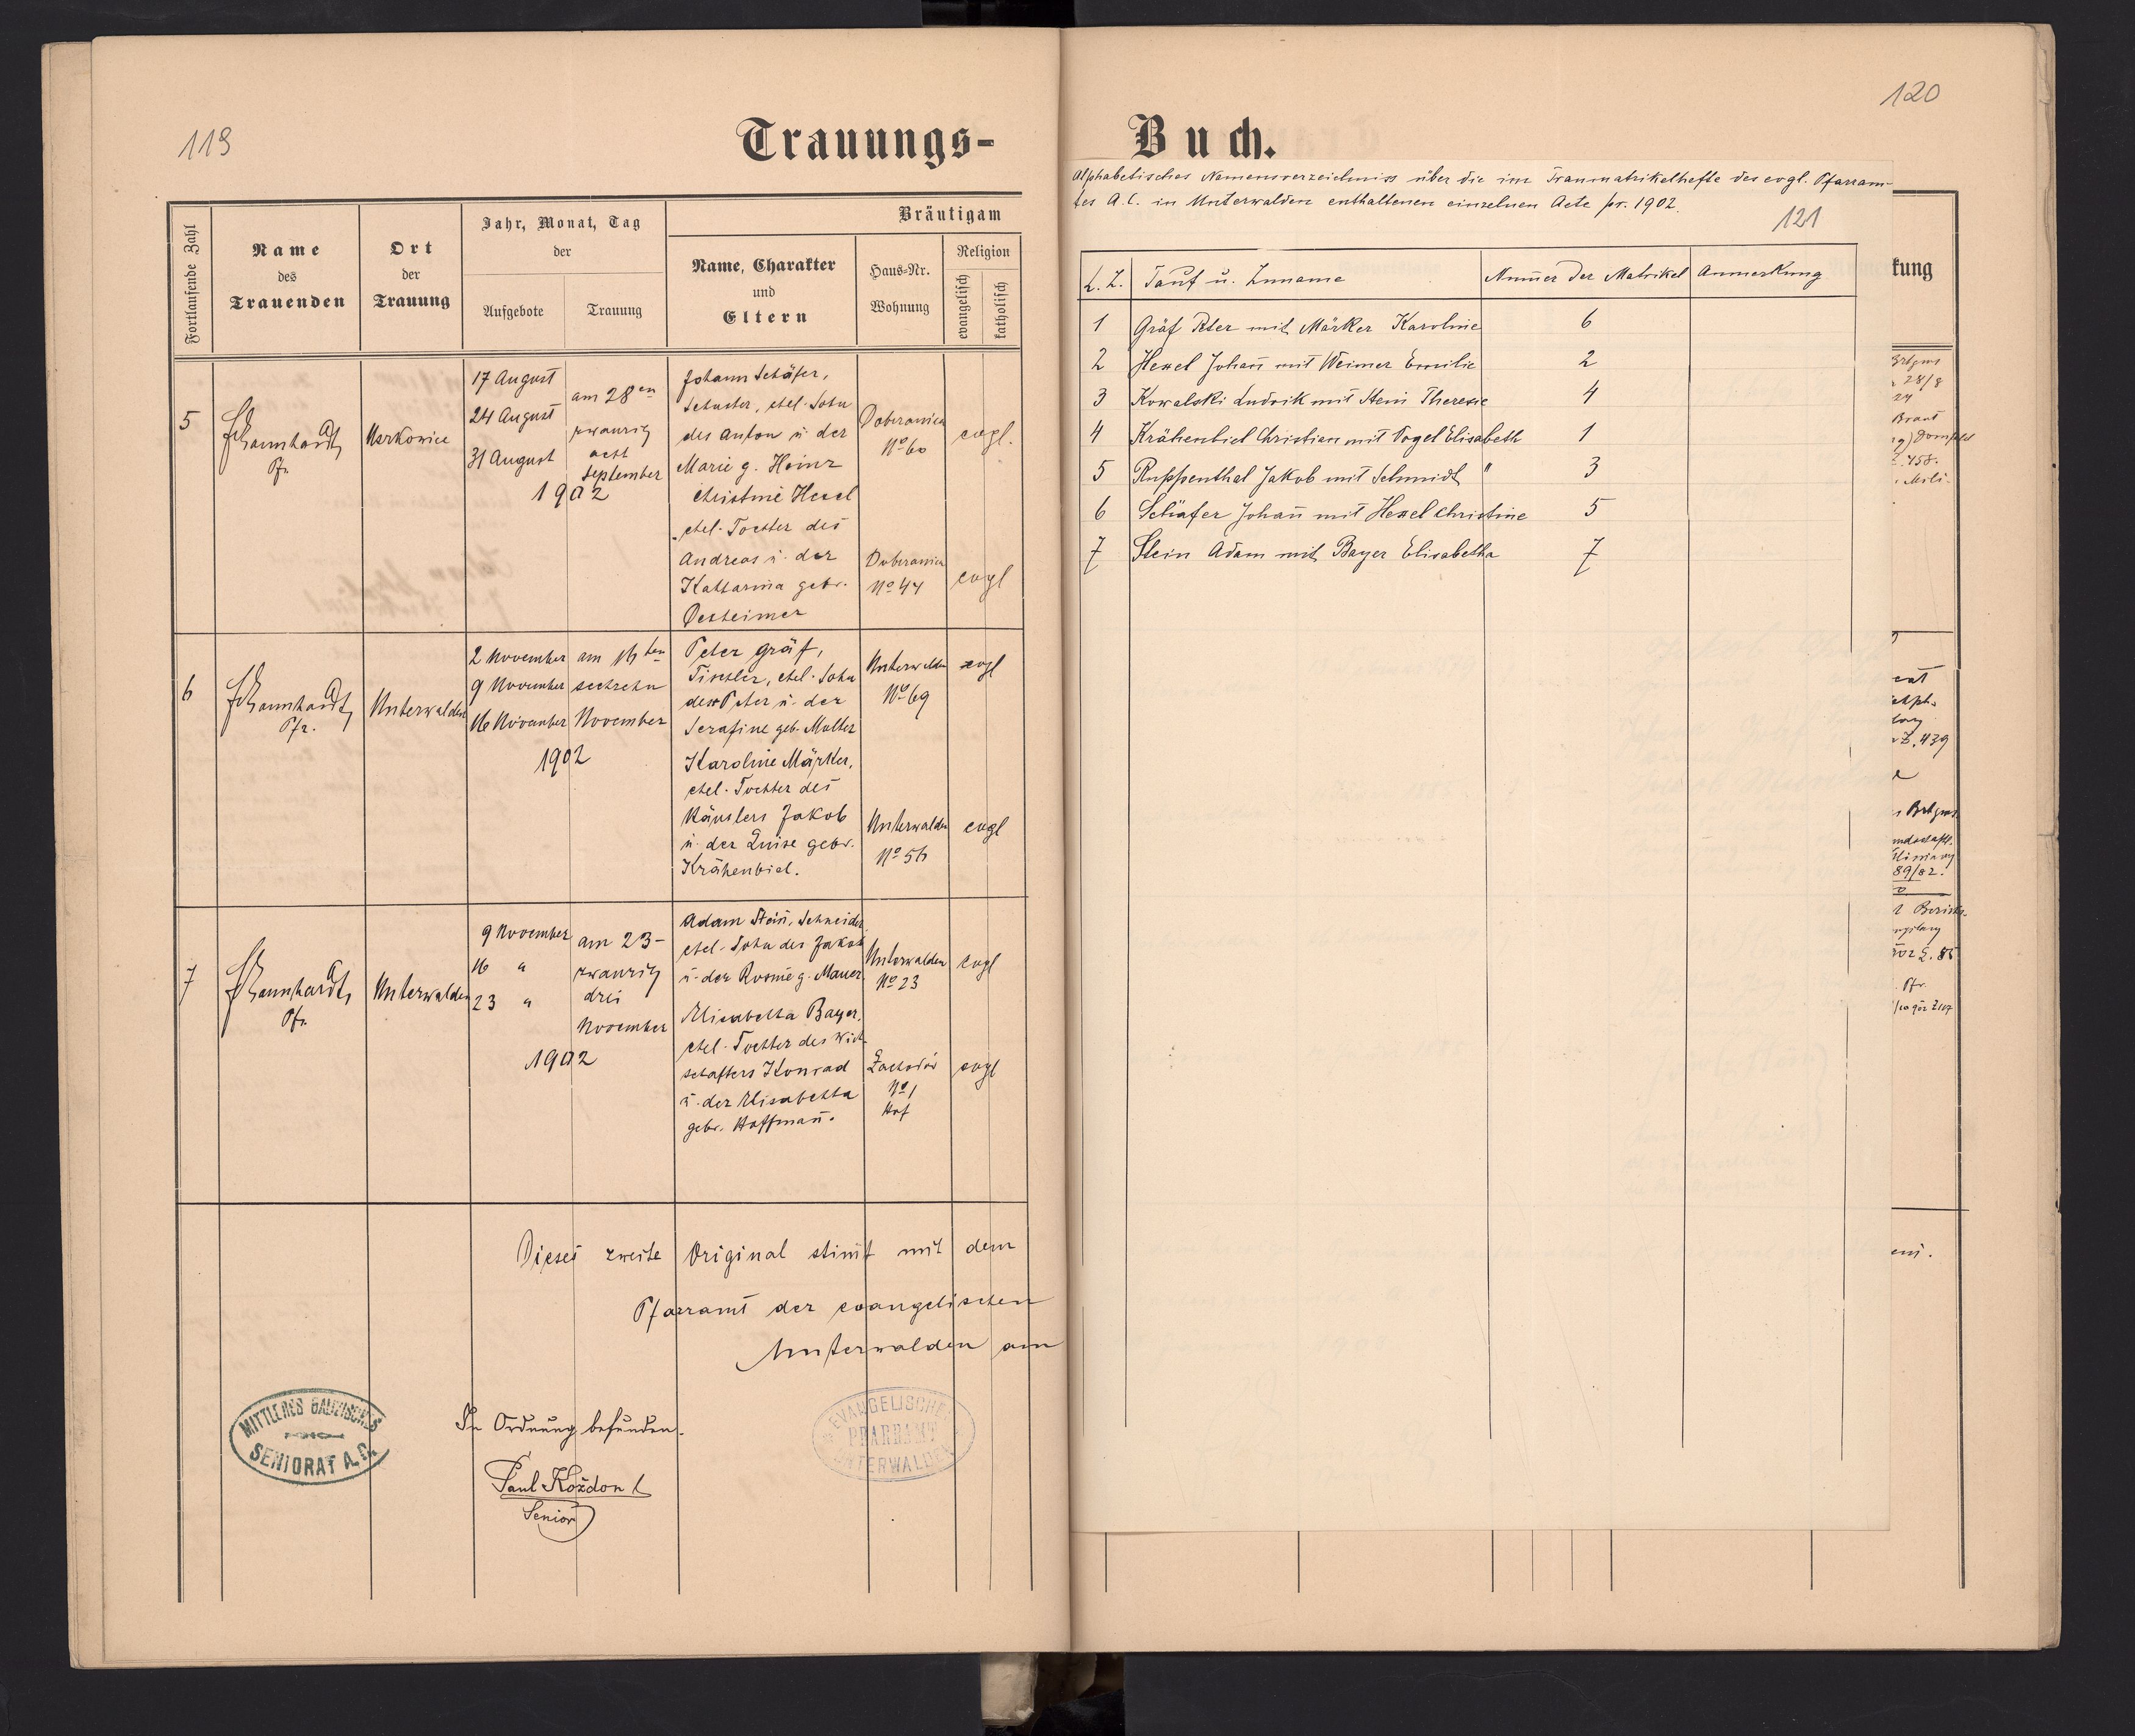 119
Trauungs-
Fortlaufende Zahl
Name
des
Trauenden
Ort
der
Trauung
Jahr, Monat, Tag
der
Aufgebote
Trauung
Bräutigam
Name, Charakter
und
Eltern
Haus-Nr.
Wohnung
Religion
evangelisch
katholisch
5
Pfr.
17 August
24 August
31 August
am 28en
zwanzig
acht
September
1902
Johann Schäfer,
Schuster, ehel. Sohn
des Anton u. der
Marie g. Heinz
Christine Hexel
ehel. Tochter des
Andreas u. der
Katharina gebr.
Oesheimer
No 60
evgl.
No 44
evgl
6
Pfr.
Unterwalden
2 November
9 November
16 November
am 16ten
sechzehn
November
1902
Peter Gräf,
Tischler, ehel. Sohn
des Peter u. der
Serafine geb. Molter
Karoline Märker,
ehel. Tochter des
Häuslers Jakob
u. der Luise gebr.
Krähenbiel.
Unterwalden
No 69
evgl
Unterwalden
No 56
evgl
7
Pfr.
Unterwalden
9 November
16 "
23 "
am 23-
zwanzig
drei
November
1902
Adam Stein, Schneider
ehel. Sohn des Jakob
u. der Rosine g. Mauer.
Elisabetha Bayer,
ehel. Tochter des Wirt-
schafters Konrad
u. der Elisabetha
gebr. Hoffman̄.
Unterwalden
No 23
evgl
Zachodów
No 1
Hof
evgl
Dieses zweite Original stim̄t mit dem
Pfarramt der evangelischen
Unterwalden am
MITTLERES GALIZISCHES
SENIORAT A. C.
In Ordnung befunden.
Paul Kożdon
Senior
EVANGELISCHES
PFARRAMT
UNTERWALDEN
120
Buch.
Alphabetisches Namensverzeichniss über die im Traumatrikelhefte des evgl. Pfarram-
tes A.C. in Unterwalden enthaltenen einzelnen Acte pr. 1902.
121
L. Z. Tauf u. Zuname Num̄er der Matrikel Anmerkung
1 Gräf Peter mit Märker Karoline 6
2 Hexel Johan̄ mit Weimer Emilie 2
3 Kowalski Ludwik mit Stein Therese 4
4 Krähenbiel Christian mit Vogel Elisabeth 1
5 Ruppenthal Jakob mit Schmidt " 3
6 Schäfer Johan̄ mit Hexel Christine 5
7 Stein Adam mit Bayer Elisabetha 7
kung
28/8
24
Braut
Z. 458.
Z. 439
89/02.
Pfr.